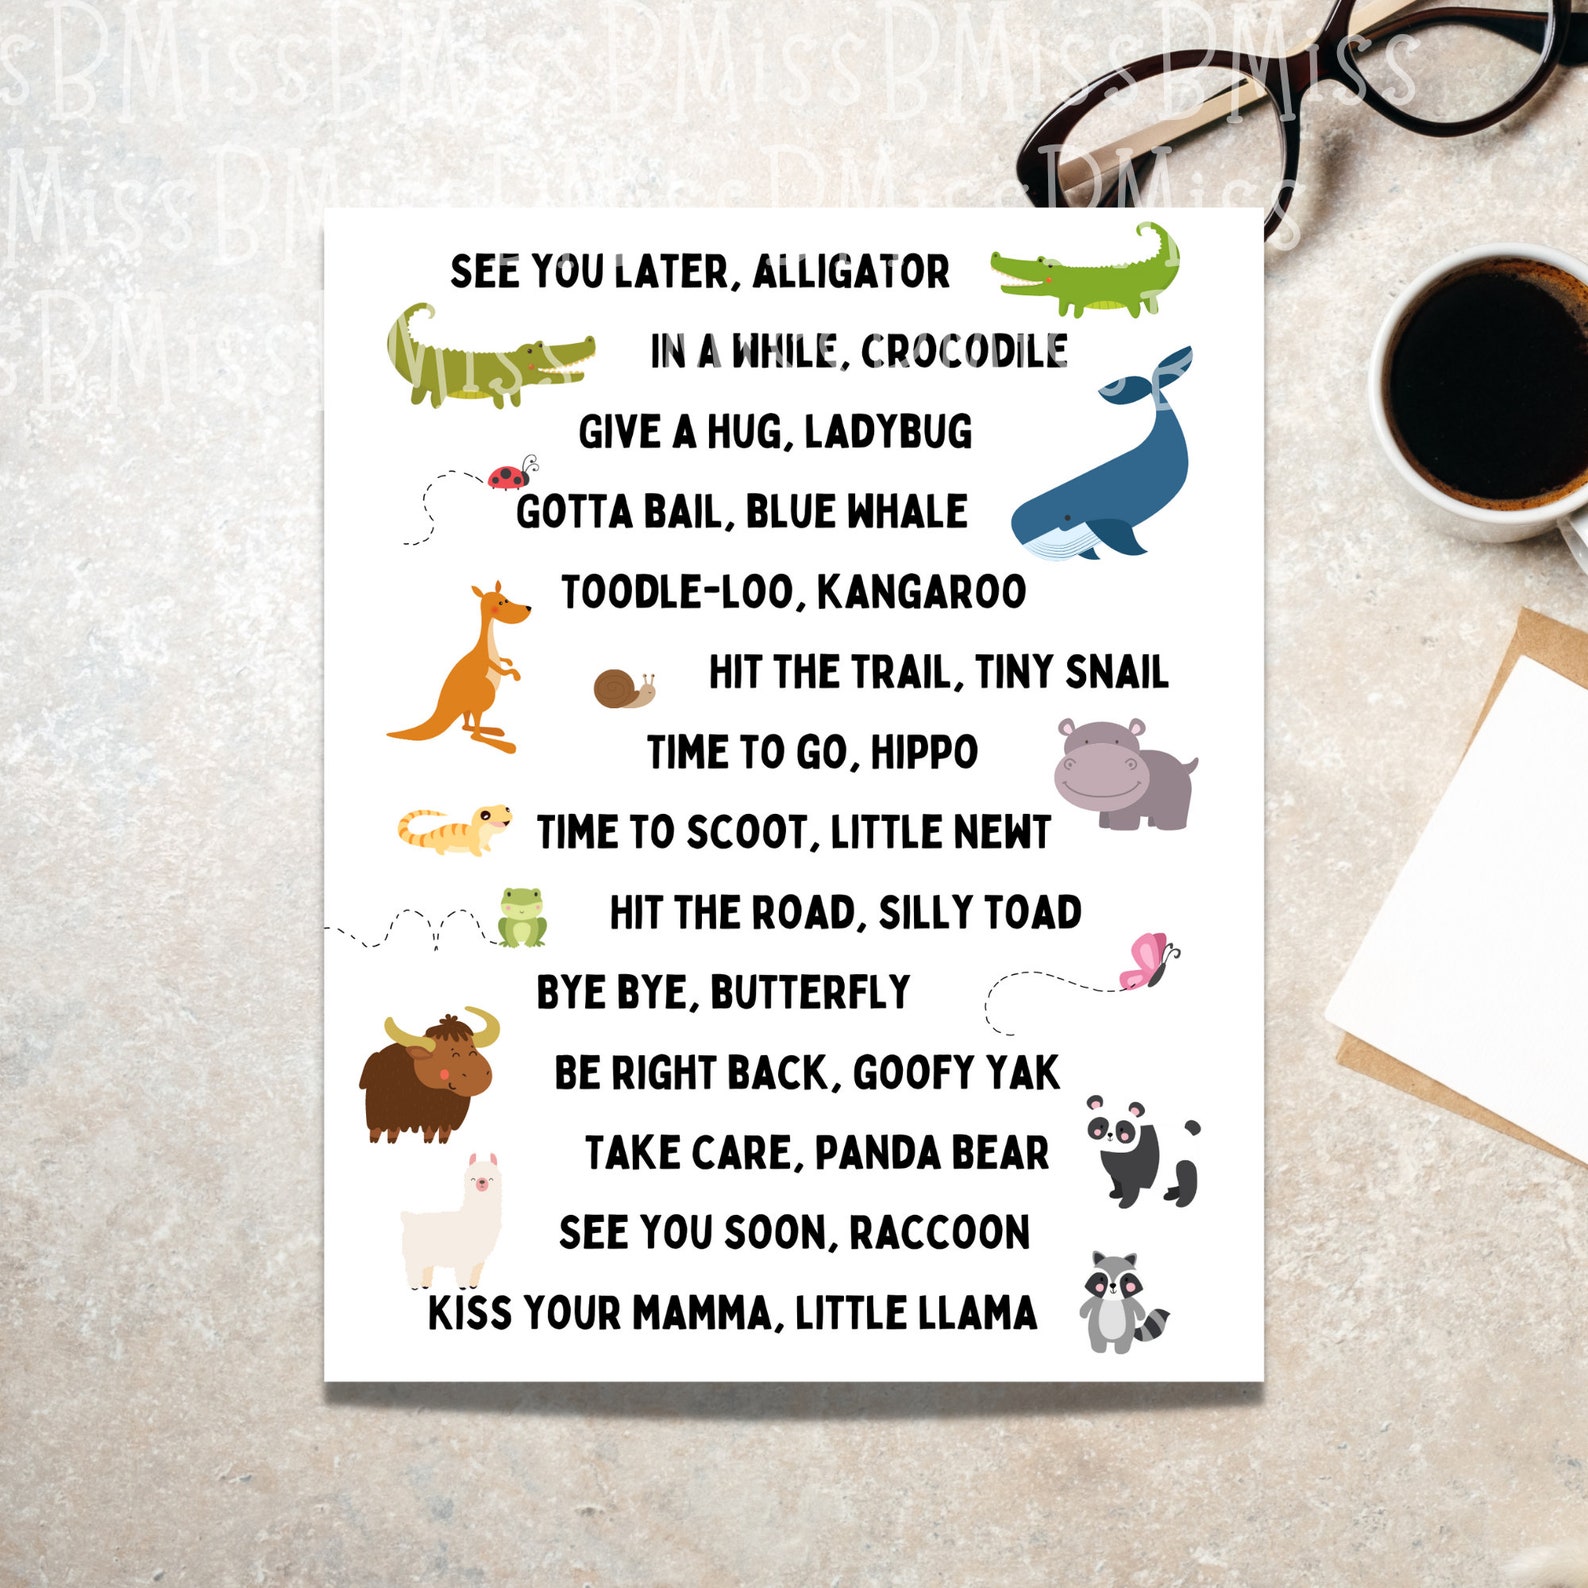 BMissBMissBMissBMissBMissBMiss
MissBMissBMissBMiss
SEE YOU LATER, ALLIGATOR
IN A WHILE, CROCODILE
GIVE A HUG, LADYBUG
GOTTA BAIL, BLUE WHALE
TOODLE-LOO, KANGAROO
HIT THE TRAIL, TINY SNAIL
TIME TO GO, HIPPO
TIME TO SCOOT, LITTLE NEWT
HIT THE ROAD, SILLY TOAD
BYE BYE, BUTTERFLY
BE RIGHT BACK, GOOFY YAK
TAKE CARE, PANDA BEAR
SEE YOU SOON, RACCOON
KISS YOUR MAMMA, LITTLE LLAMA